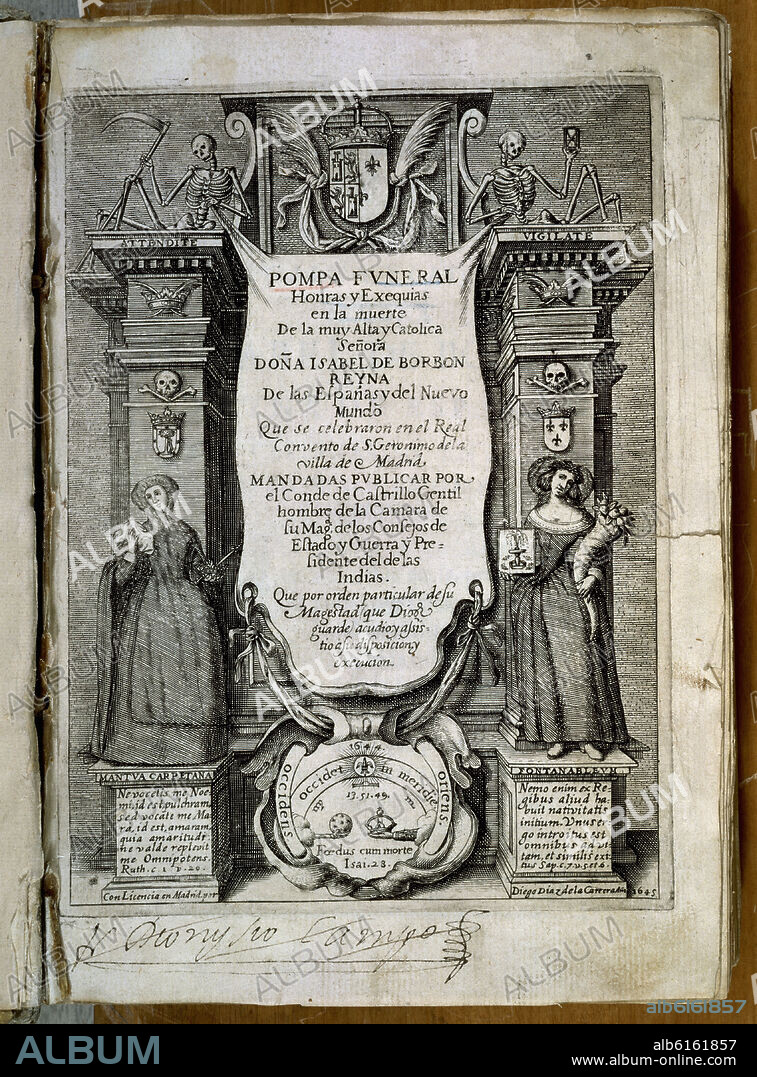 ATTENDITE
VIGILATE
POMPA FVNERAL
Honras y Exequias
en la muerte
De la muy Alta y Catolica
Señora
DOÑA ISABEL DE BORBON
REYNA
De las Españas y del Nuevo
Mundo
Que se celebraron en el Real
Convento de S. Geronimo de la
villa de Madrid.
MANDADAS PVBLICAR POR
el Conde de Castrillo Gentil
hombre de la Camara de
su Mag. de los Consejos de
Estado y Guerra y Pre=
sidente del de las
Indias.
Que por orden particular de su
Magestad que Dios
guarde, acudio y assis-
tio a su disposicion y
execucion.
MANTVA CARPETANA
Ne vocetis me Noe
mi, id est, pulchram,
sed vocate me Ma
ra, id est, amaram,
quia amaritudi
ne valde replevit
me Omnipotens.
Ruth. c 1 v. 20.
1644
occidens occidet in meridie oriens
13. 51. 49.
Fœdus cum morte
Isai. 28.
FONTANABLEVM
Nemo enim ex Re
gibus aliud ha
buit nativitatis
initium. Vnus er
go introitus est
omnibus ad vi
tam, et similis exi
tus Sap. c. 7. v. 5. et 6.
Con Licencia en Madrid, por
Diego Diaz de la Carrera Año 1645
Dionysio Campo
ALBUM
alb6161857
ALBUM
alb6161857
www.album-online.com